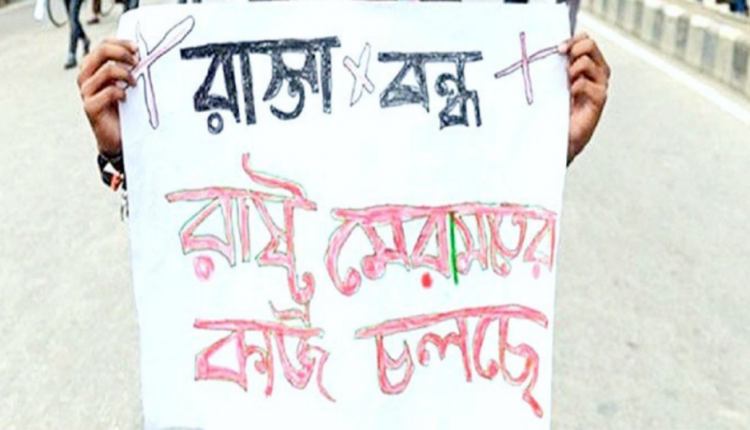 রাস্তা বন্ধ
রাষ্ট্র মেরামতের
কাজ চলছে